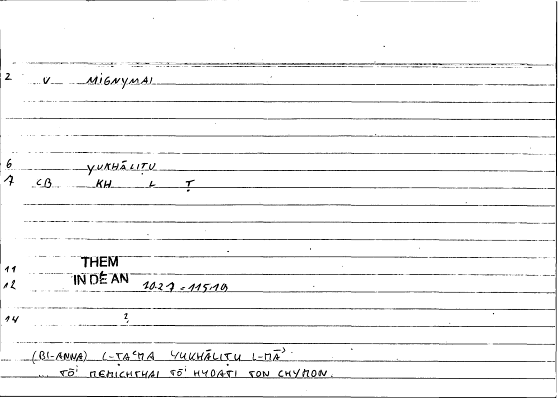 2 V MIGNYMAI
6 YUKHĀLIṬU
7 CB KH L Ṭ
11 THEM
12 IN DE AN 10.27 = 115.19
14 ?
(BI-ANNA) L-ṬAʿMA YUKHĀLIṬU L-MĀʾ
... TŌI MEMICHTHAI TŌI HYDATI TON CHYMON.